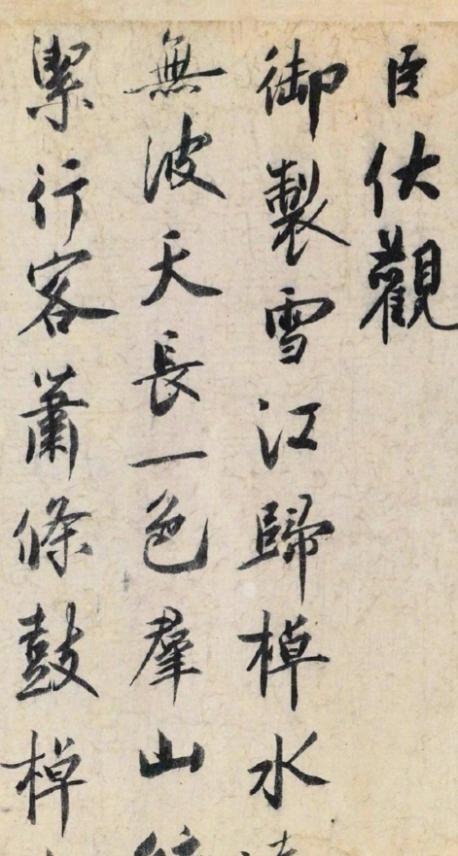 臣伏觀
御製雪江歸棹水
無波天長一色羣山
絜行客蕭條鼓棹